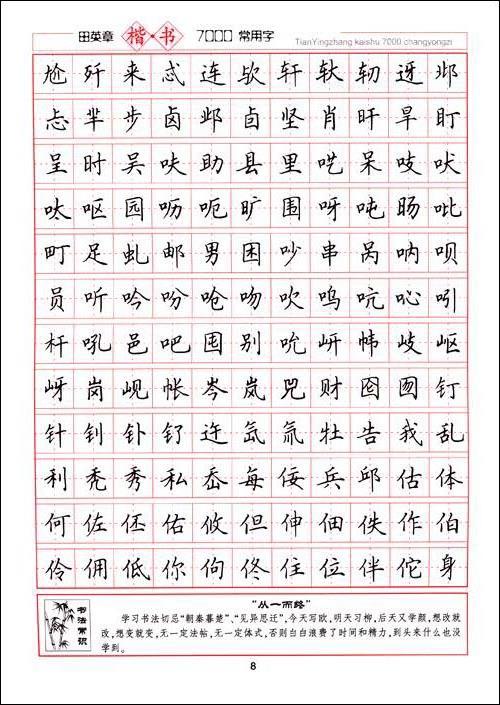 田英章 楷·书 7000 常用字
TianYingzhang kaishu 7000 changyongzi
尬歼来忒连欤轩轪轫迓邶
忐芈步卤邺卣坚肖旰旱盯
呈时吴呋助县里呓呆吱吠
呔呕园呖呃旷围呀吨旸吡
町足虬邮男困吵串呙呐呗
员听吟吩呛吻吹呜吭吣吲
杆吼邑吧囤别吮岍帏岐岖
岈岗岘帐岑岚兕财囵囫钉
针钊钋钌迕氙氚牡告我乱
利秃秀私岙每佞兵邱估体
何佐伾佑攸但伸佃佚作伯
伶佣低你佝佟住位伴佗身
书法常识
“从一而终”
学习书法切忌“朝秦暮楚”、“见异思迁”，今天写欧，明天习柳，后天又学颜，想改就
改，想变就变，无一定法帖，无一定体式，否则白白浪费了时间和精力，到头来什么也没
学到。
8